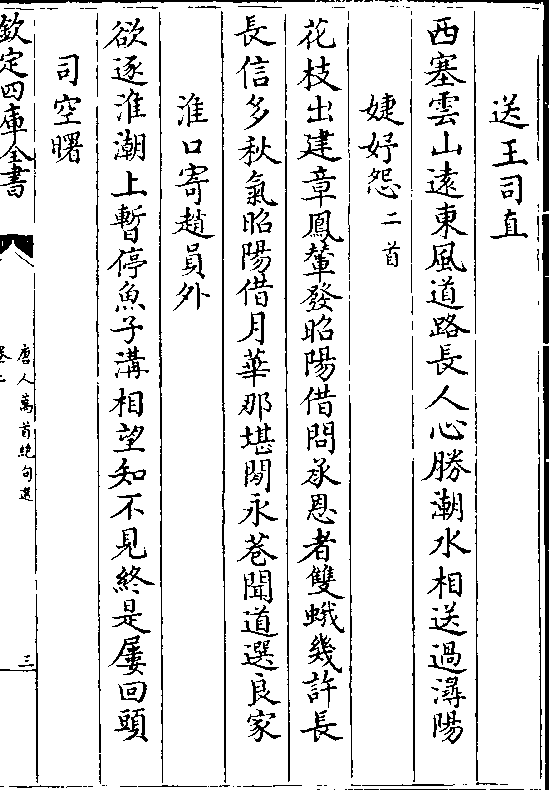 送王司直
西塞雲山遠東風道路長人心勝潮水相送過潯陽
婕妤怨二首
花枝出建章鳳輦發昭陽借問承恩者雙蛾幾許長
長信多秋氣昭陽借月華那堪閉永巷聞道選良家
淮口寄趙員外
欲逐淮潮上暫停魚子溝相望知不見終是屢回頭
司空曙
欽定四庫全書
唐人萬首絶句選
卷二
三